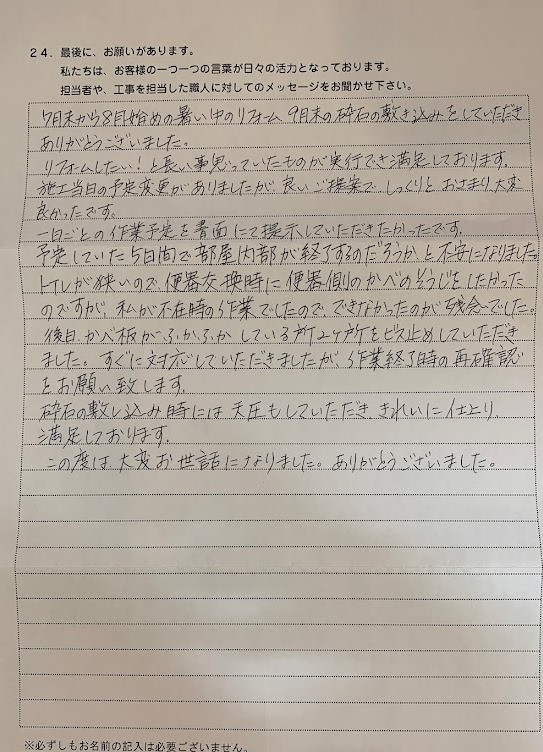 ２４．最後に、お願いがあります。
私たちは、お客様の一つ一つの言葉が日々の活力となっております。
担当者や、工事を担当した職人に対してのメッセージをお聞かせ下さい。
7月末から8月始めの暑い中のリフォーム 9月末の砕石の敷き込みをしていただき
ありがとうございました。
リフォームしたい！と長い事思っていたものが実行でき満足しております。
施工当日の予定変更がありましたが 良いご提案で しっくりと おさまり大変
良かったです。
一日ごとの作業予定を書面にて提示していただきたかったです。
予定していた5日間で部屋内部が終了するのだろうか、と不安になりました。
トイレが狭いので 便器交換時に 便器側のかべのそうじをしたかった
のですが、私が不在時の作業でしたので、できなかったのが残念でした。
後日 かべ板が ふかふか している所2ヶ所をビス止めしていただき
ました。すぐに対応していただきましたが、作業終了時の再確認
をお願い致します。
砕石の敷し込み時には 天圧もしていただき きれいに仕上り
満足しております。
この度は 大変お世話になりました。ありがとうございました。
※必ずしもお名前の記入は必要ございません。